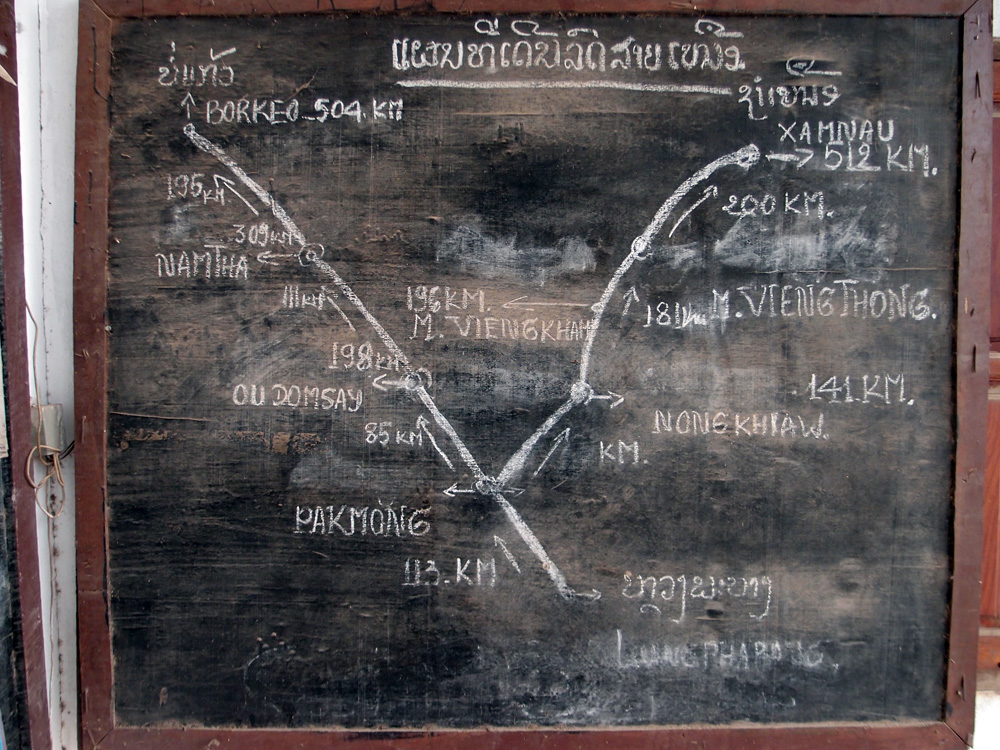 ແຜນທີ່ເດີນລົດສາຍເໜືອ
ບໍ່ແກ້ວ
BORKEO_504.KM
XAMNAU
512 KM.
195 KM
200 KM.
309 KM
NAMTHA
111 KM
196 KM.
M. VIENGKHAM
181 Km
M. VIENGTHONG.
198 KM
OUDOMSAY
141.KM.
NONGKHIAW.
85 KM
KM.
PAKMONG
113.KM
ຫຼວງພະບາງ
LUANGPHABANG.